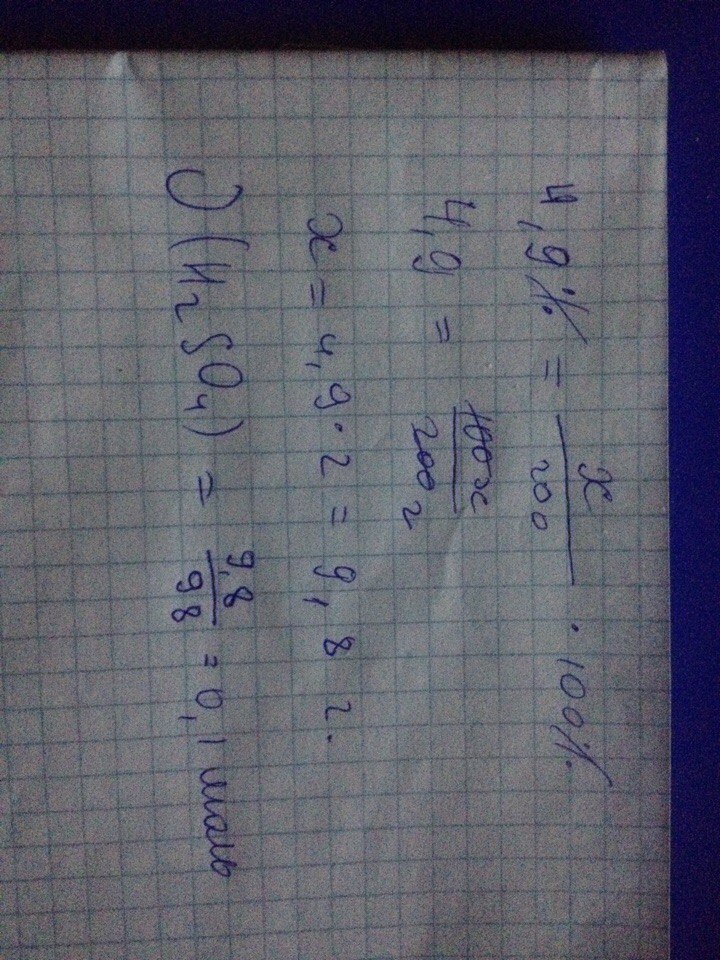 4,9% = x/200 · 100%
4,9 = 100x/200 2
x = 4,9 · 2 = 9,8 г.
ν(H₂SO₄) = 9,8/98 = 0,1 моль